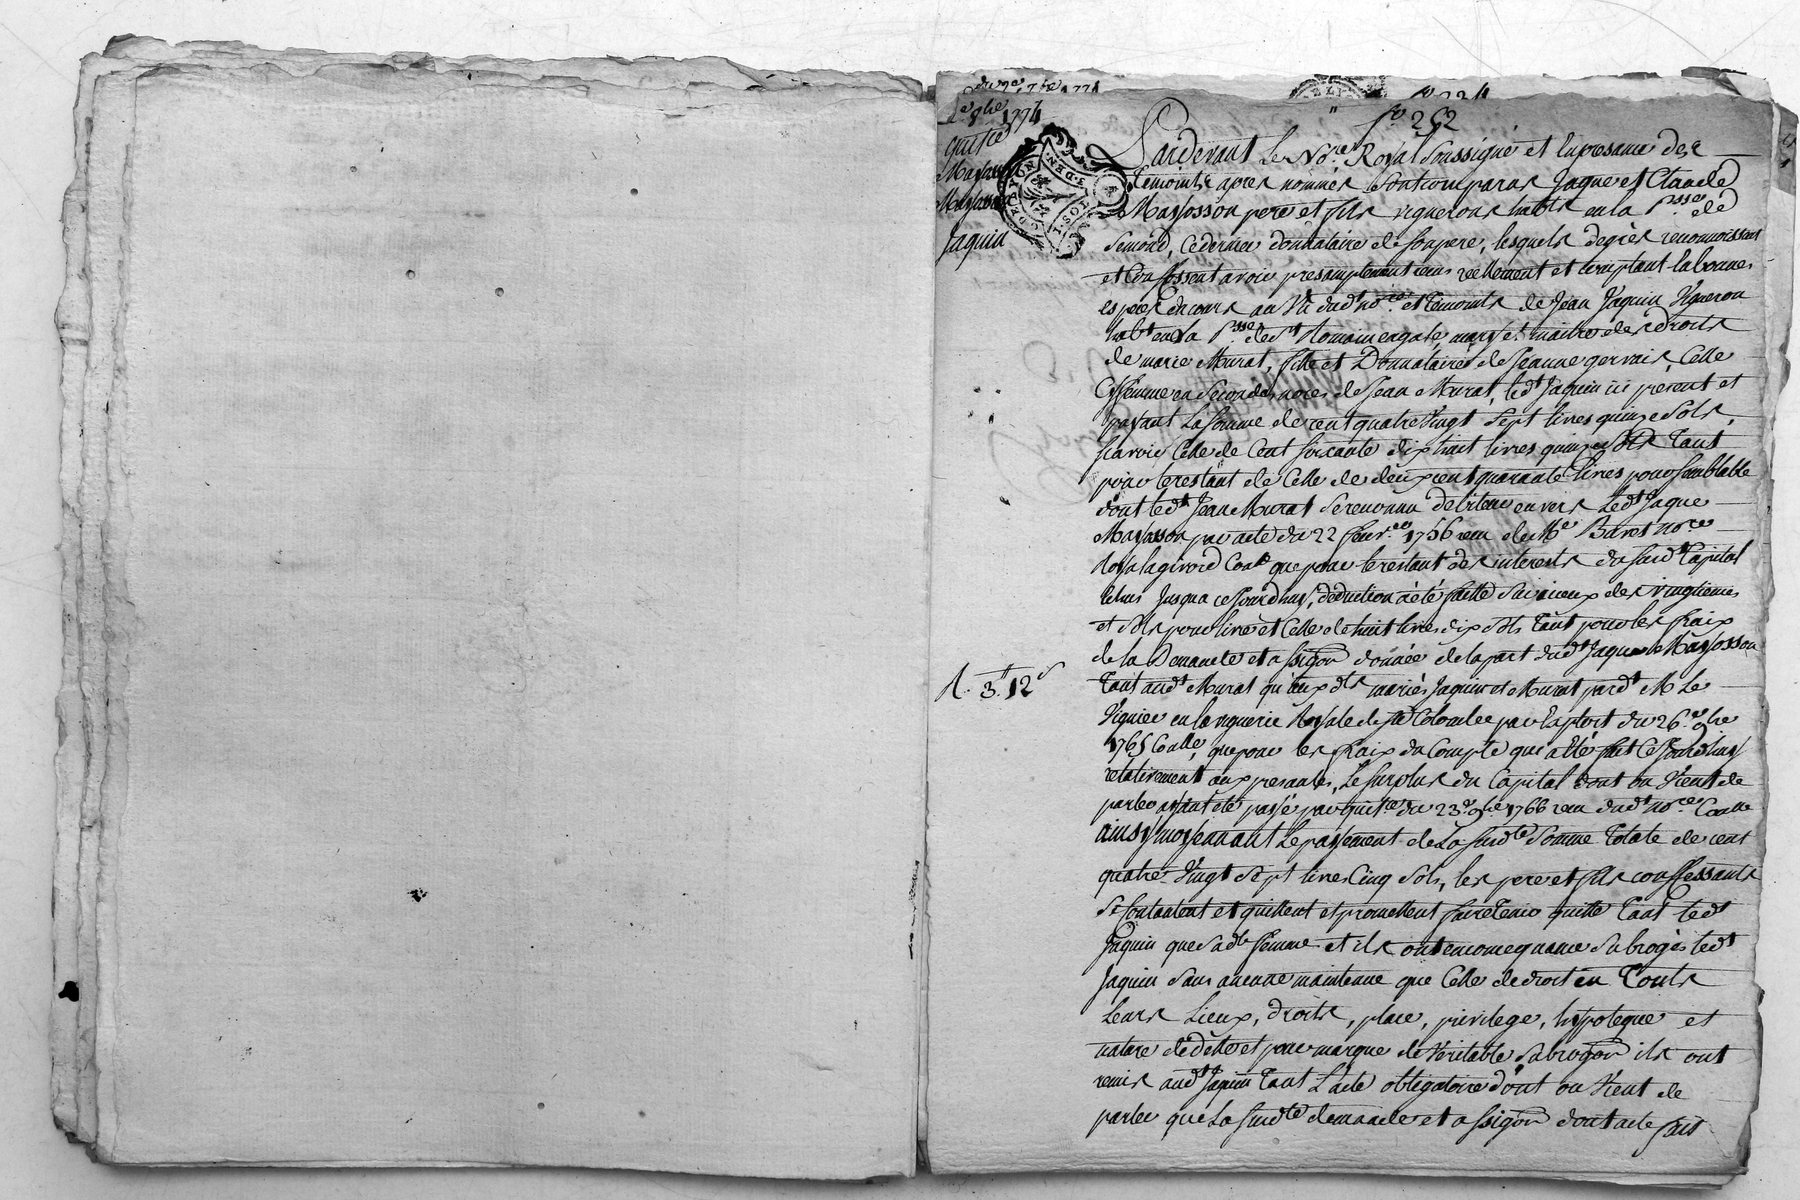 du 2e 7bre 1774
fo 234
8bre 1774
fo 252
quitce
Massosson
Massosson
Jaquin
GN. DE LYON
Pardevant Le Nore Royal Soussigné et Enpresance des
temoints apres nommés Sont comparus Jaque et Claude
Massosson pere et fils vignerons habts en la Psse de
Semond, Cedernier donnataire de Sonpere, lesquels degrés reconnoissent
et Confessent avoir presamptement recus reellement et comptant En bonnes
especes du cours au Vu dudt nore et temoints de Jean Jaquin Vigneron
habt en la Psse de St Romainengale, mary et maitre des droits
de marie Murat, fille et Donnataire de Jeanne gervais, Celle
Cy femme en Secondes noces de Jean Murat, ledt Jaquin icy present et
payant La Somme de cent quatre Vingt Sept livres quinze Sols
Scavoir Celle de Cent Soixante dix huit livres quinze Sols Tant
pour lerestant de Celle de deux cent quarante livres pour Semblable
dont ledt Jean Murat Sereconnu debiteur envers Ledt Jaque
Massosson par acte du 22 fevrier 1756 recu de Me Buret nore
Royal agivord Conlé que pour lerestant des interests du Susdt Capital
Echus Jusqua cejourdhuy, déduction a été faitte des vingtiemes
et Sols pour livre et Celle de huit livres dix Sols Tant pour les fraix
de la Demande et assigon donnée de la part dudt Jaque Massosson
A. 3tt 12s
Tant audt Murat qu'aux dts mariés Jaquin et Murat pardt M Le
Viguier en la viguerie Royale de Ste Colombe par Exploit du 26e 9bre
1765 Conllé, que pour les fraix du Compte qui a été fait Cejourdhuy
relativement aux presantes, Le Surplus du Capital dont on Vient de
parler ayant été payé par quitce du 23e 9bre 1766 recu dudt nore Conllé
ainsy moyennant Le payement de La Susdte Somme Totale de cent
quatre Vingt Sept livres Cinq Sols, les pere et fils confessants
Se Contentent et quittent et promettent faire Tenir quitte Tant ledt
Jaquin que Sadte femme et ils ont en consequance Subrogés ledt
Jaquin Sans aucune maintenue que Celle de droit en Touts
Leurs Lieux, droits, place, privilege, hypoteque et
nature dedette et pour marque de Veritable Subrogon ils ont
remis audt Jaquin Tant L'acte obligatoire dont on Vient de
parler que La Susdte demande et assigon dont acte fait